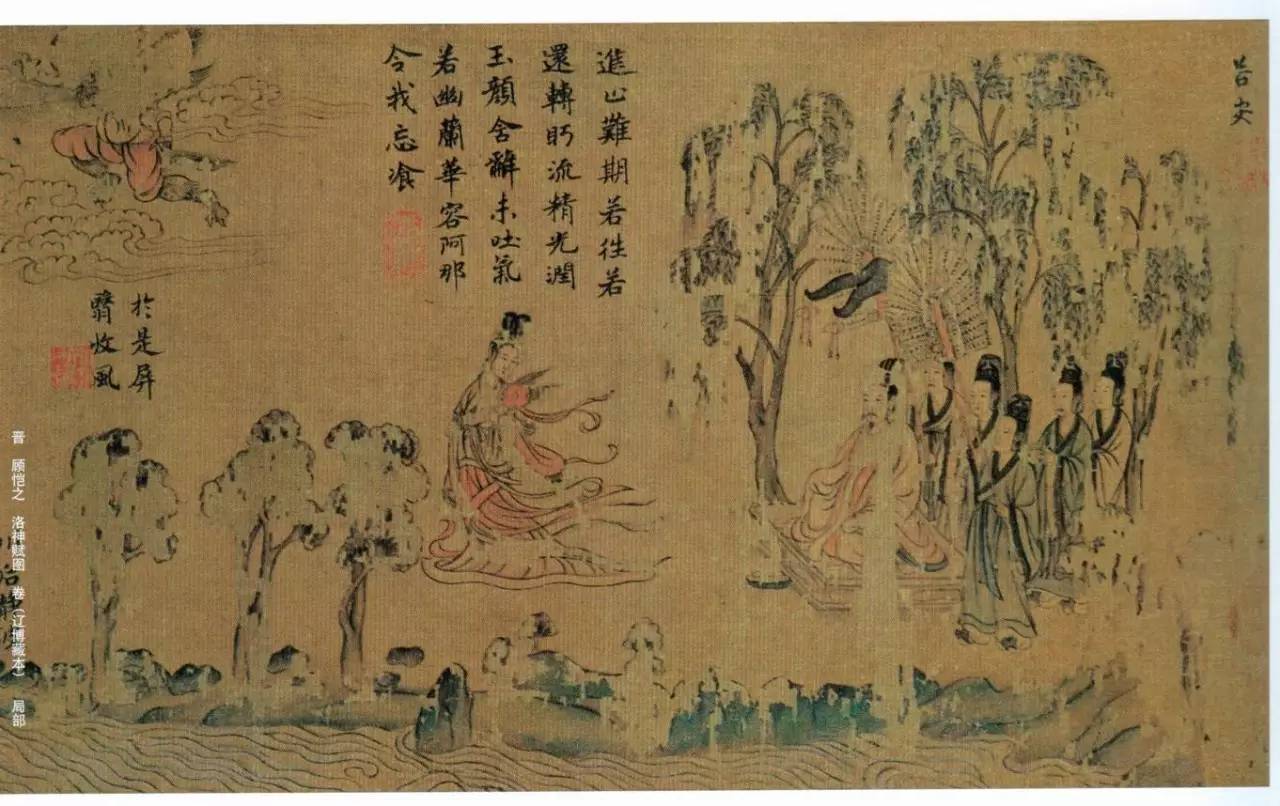 若安
進止難期若往若
還轉眄流精光潤
玉顏含辭未吐氣
若幽蘭華容阿那
令我忘飡
於是屏
翳收風
晋 顾恺之 洛神赋图 卷（辽博藏本） 局部